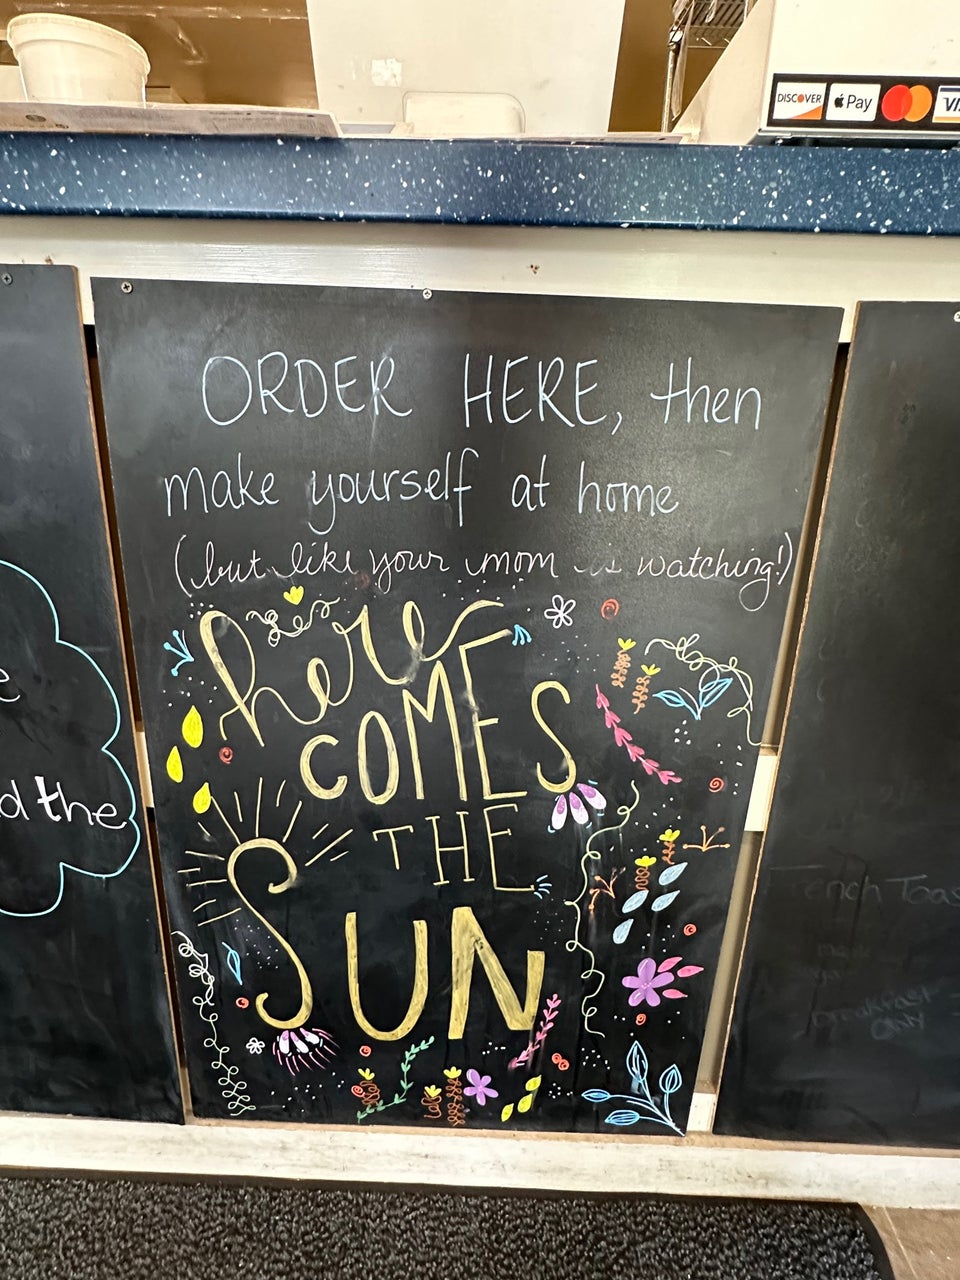 DISCOVER
Pay
VISA
ORDER HERE, then
make yourself at home
(but like your mom is watching!)
here
COMES
THE
SUN
e
d the
French Toast
breakfast
only